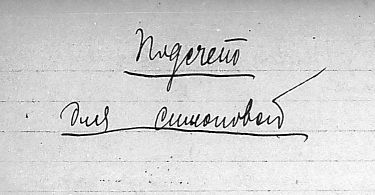 Подсчет
для симоновой